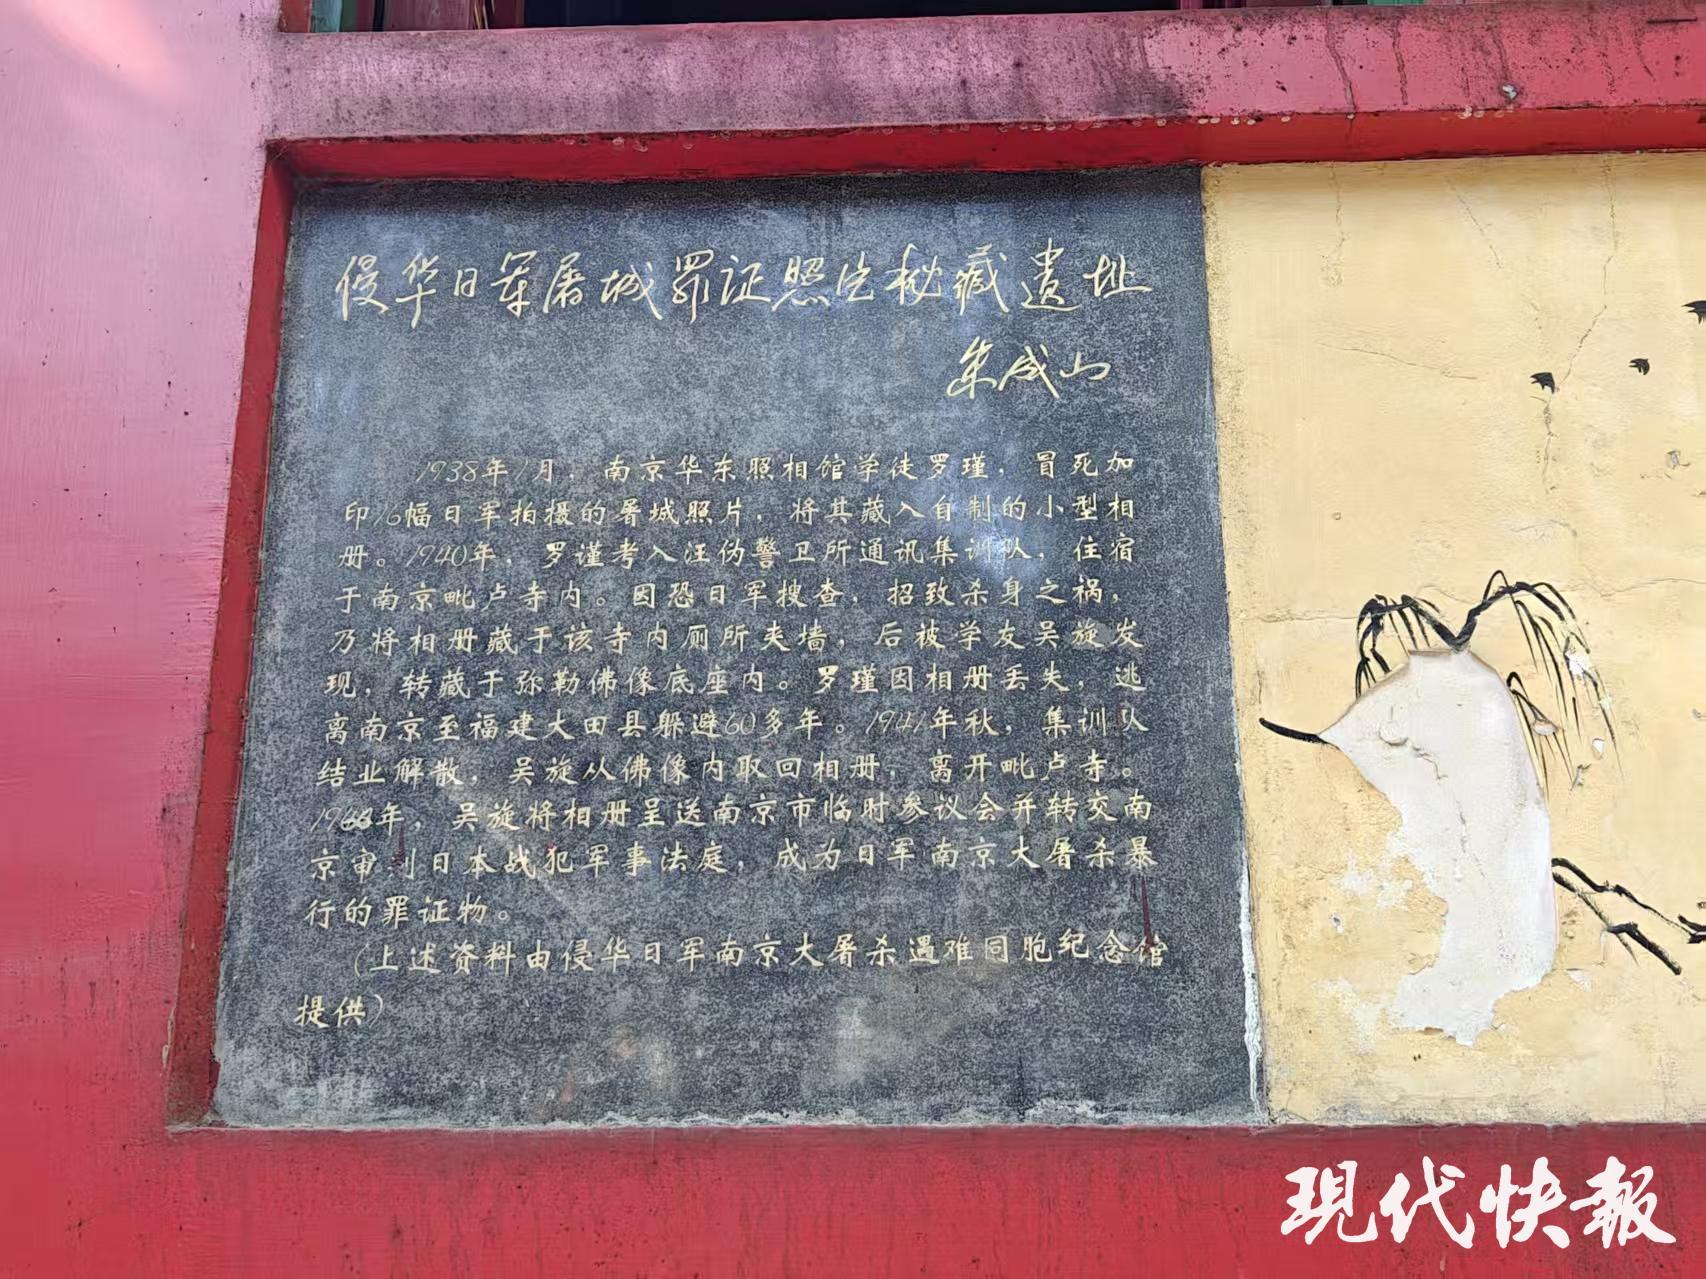 侵华日军屠城罪证照片秘藏遗址
朱成山
1938年1月，南京华东照相馆学徒罗瑾，冒死加
印16幅日军拍摄的屠城照片，将其藏入自制的小型相
册。1940年，罗谨考入汪伪警卫所通讯集训队，住宿
于南京毗卢寺内。因恐日军搜查，招致杀身之祸，
乃将相册藏于该寺内厕所夹墙，后被学友吴旋发
现，转藏于弥勒佛像底座内。罗瑾因相册丢失，逃
离南京至福建大田县躲避60多年。1941年秋，集训队
结业解散，吴旋从佛像内取回相册，离开毗卢寺。
年，吴旋将相册呈送南京市临时参议会并转交南
京审判日本战犯军事法庭，成为日军南京大屠杀暴
行的罪证物。
（上述资料由侵华日军南京大屠杀遇难同胞纪念馆
提供）
现代快報